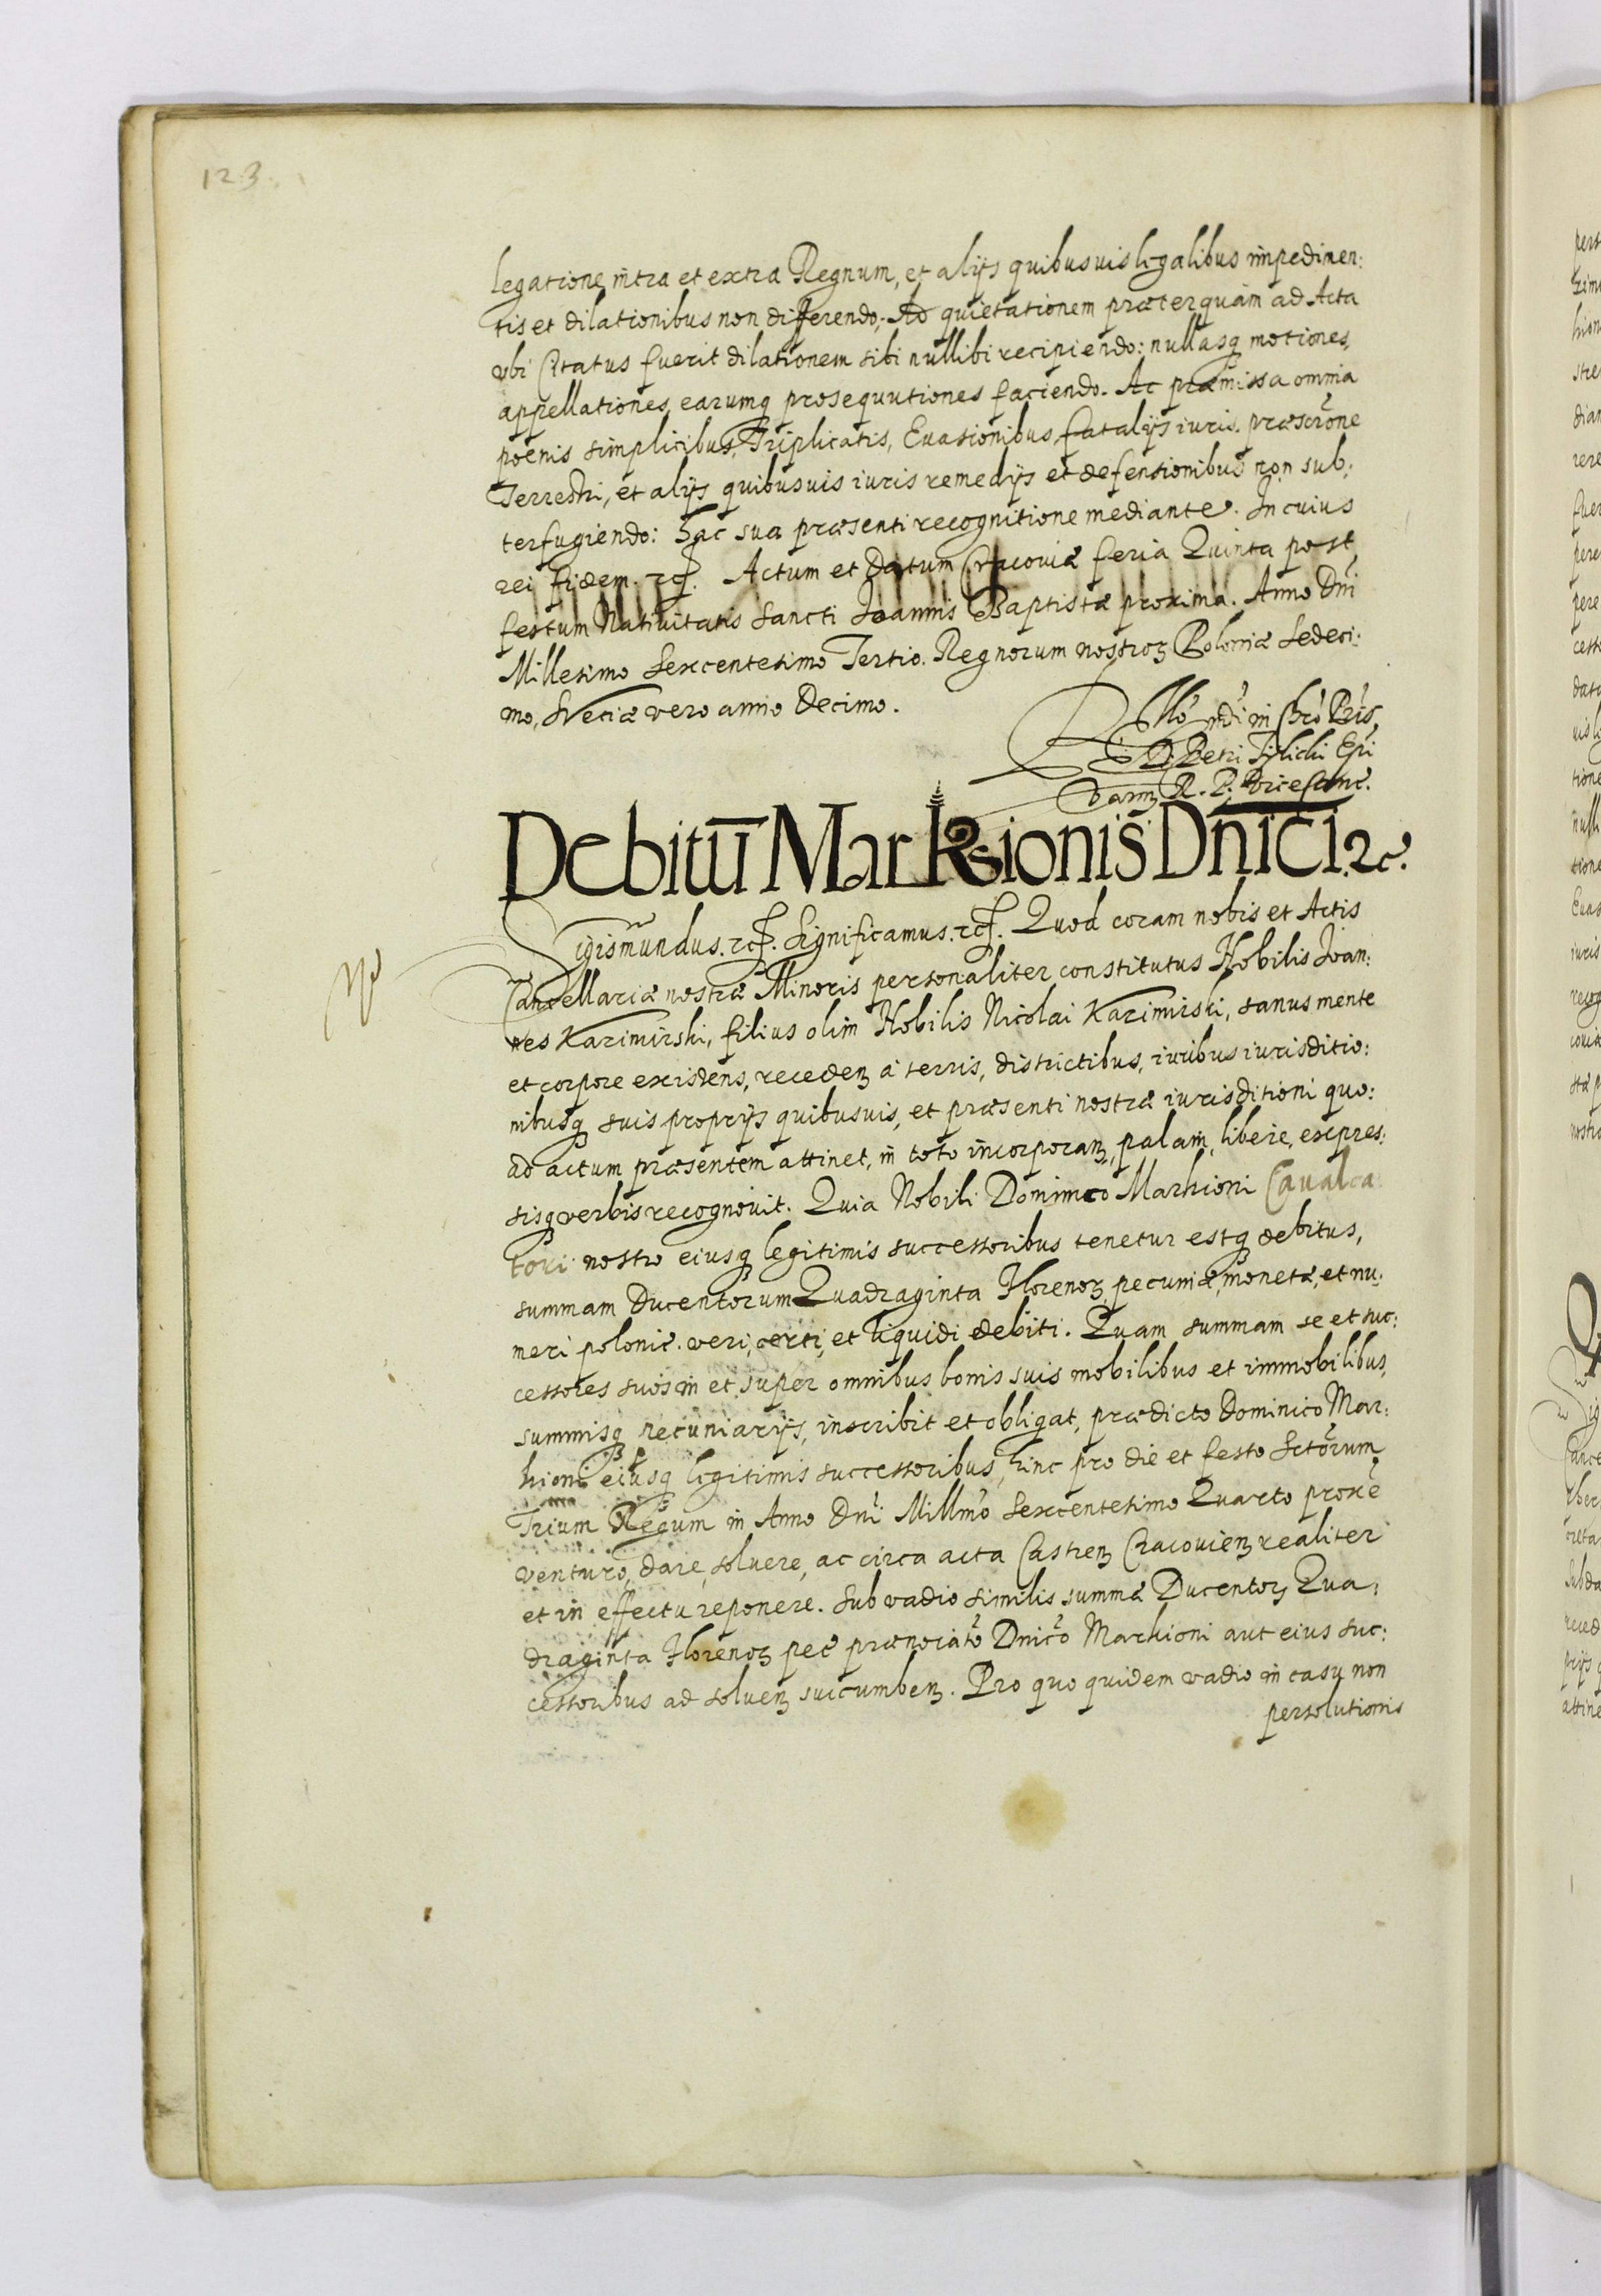 123.
legatione intra et extra Regnum, et alijs quibusuis legalibus impedimen:
tis et dilationibus non differendo, Ad quietationem præterquam ad Acta
vbi Citatus fuerit dilationem sibi nullibi recipiendo: nullasq motiones,
appellationes, earumq prosequutiones faciendo. Ac præmissa omnia
poenis simplicibus, Triplicatis, Euasionibus, fatalijs iuris. præscrōne
Terrestri, et alijs quibusuis iuris remedijs et defensionibus non sub:
terfugiendo: Hac sua præsenti recognitione mediante. In cuius
rei fidem. rcȝ. Actum et Datum Cracouiæ feria Quinta post
festum Natiuitatis Sancti Joannis Baptistæ proxima. Anno Dnī
Millesimo Sexcentesimo Tertio. Regnorum nostroꝝ Poloniæ Sedeci:
mo, Sveciæ vero anno Decimo.
Rlłō ndi in Chrō Pris,
D. D. Petri Tÿlicki Epi
Varm R. P. Vicecanc.
Debitū Markhionis Dn̄ici. 2c.
Sigismundus. rcȝ. Significamus. rcȝ. Quod coram nobis et Actis
Cancellariæ nostræ Minoris personaliter constitutus Nobilis Joan:
nes Kazimirski, filius olim Nobilis Nicolai Kazimirski, sanus mente
et corpore existens, recedenȝ à terris, districtibus, iuribus iurisditio:
nibusq suis proprijs quibusuis, et præsenti nostræ iurisditioni quo:
ad actum præsentem attinet, in toto incorporanȝ, palam, libere, expres:
sisq verbis recognouit. Quia Nobili Dominico Markioni Caualca
tori nostro eiusq legitimis successoribus tenetur estq debitus,
summam Ducentorum Quadraginta Florenoꝝ, pecuniæ, monetæ, et nu:
meri polonic. veri, certi, et liquidi debiti. Quam summam se et suc:
cessores suos in et super omnibus bonis suis mobilibus et immobilibus,
summisq pecuniarijs, inscribit et obligat, prædicto Dominico Mar:
kioni eiusq legitimis successoribus, hinc pro die et festo Sctōrum
Trium Regum in Anno Dnī Millmō Sexcentesimo Quarto proxē
venturo, dare, soluere, ac circa acta Castrenȝ Cracouienȝ realiter
et in effectu reponere. Sub vadio similis summæ Ducentoꝝ Qua:
draginta Florenoꝝ pec̄ prænoiātō Dnicō Markioni aut eius suc:
cessoribus ad soluenȝ suicumbenȝ. Pro quo quidem vadio in casu non
persolutionis